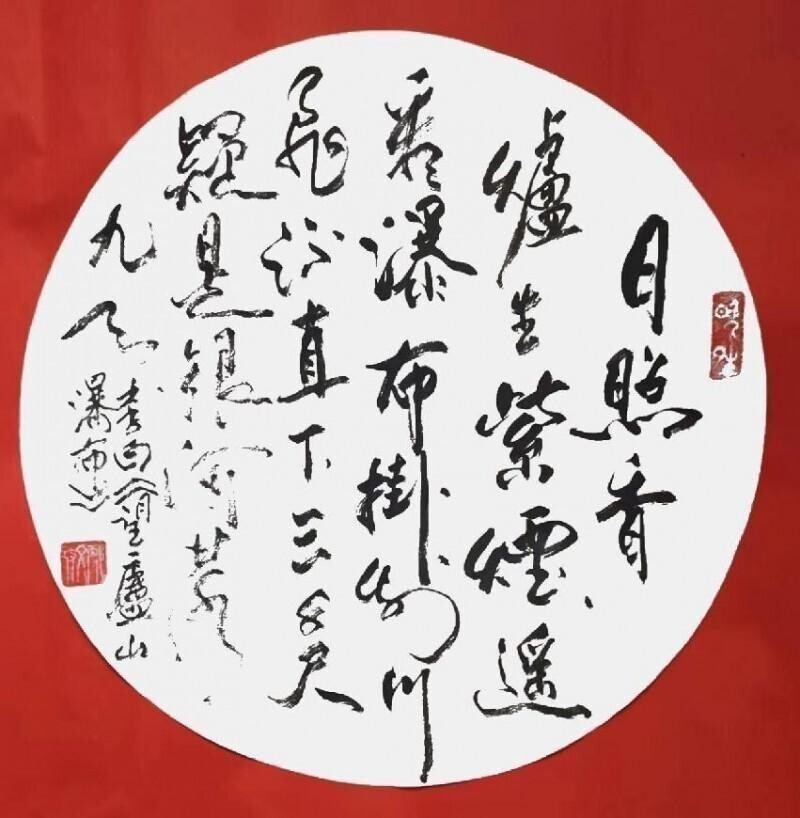 日照香
爐生紫煙遥
看瀑布掛前川
飛流直下三千尺
疑是銀河落
九天
李白《望廬山
瀑布》